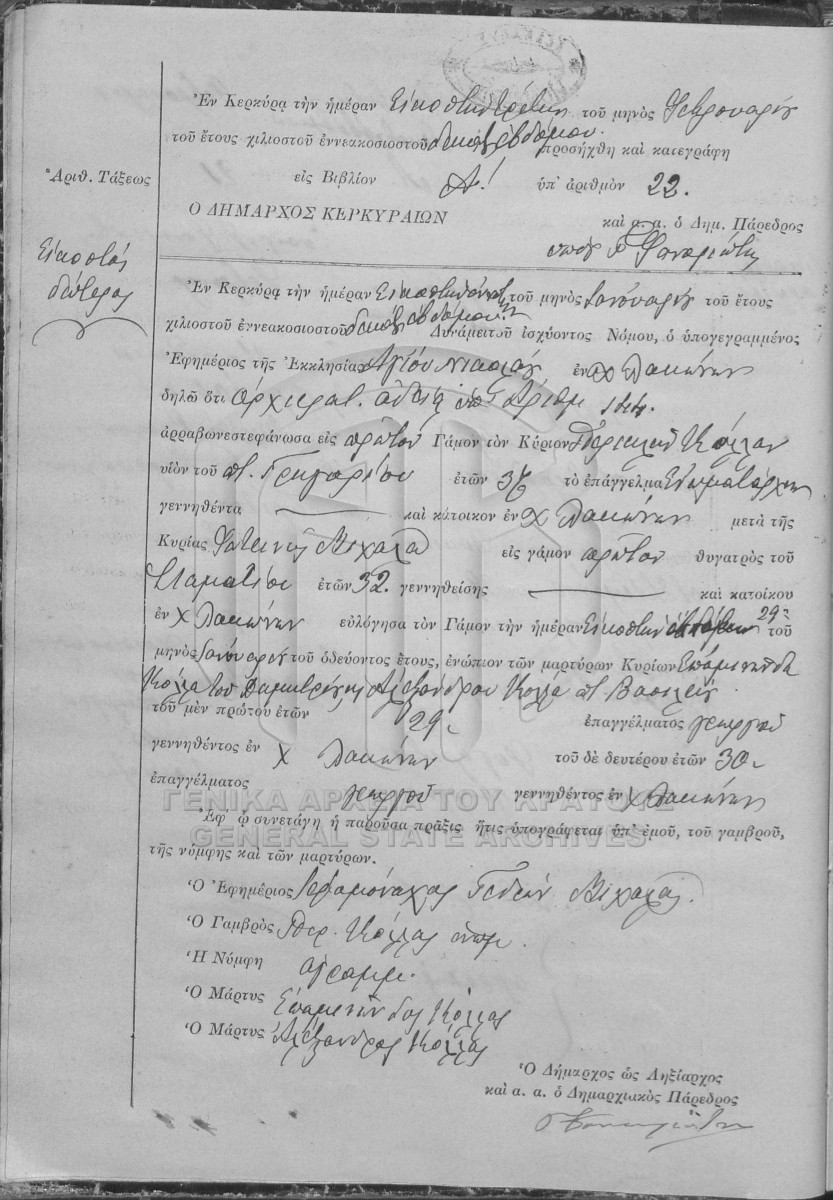 Ἐν Κερκύρᾳ τὴν ἡμέραν Εἰκοστὴν τρίτην τοῦ μηνὸς Φεβρουαρίου
τοῦ ἔτους χιλιοστοῦ ἐννεακοσιοστοῦ δεκάτου ἑβδόμου. προσήχθη καὶ κατεγράφη
Ἀριθ. Τάξεως
εἰς Βιβλίον Α! ὑπ' ἀριθμὸν 22.
Ὁ ΔΗΜΑΡΧΟΣ ΚΕΡΚΥΡΑΙΩΝ
καὶ α. α. ὁ Δημ. Πάρεδρος
Εἰκοστὸς
δεύτερος
Ἐν Κερκύρᾳ τὴν ἡμέραν τοῦ μηνὸς Ἰανουαρίου τοῦ ἔτους
χιλιοστοῦ ἐννεακοσιοστοῦ δεκάτου ἑβδόμου Δυνάμει τοῦ ἰσχύοντος Νόμου, ὁ ὑπογεγραμμένος
Ἐφημέριος τῆς Ἐκκλησίας Ἁγίου Νικολάου ἐν χ Λακώνων
δηλῶ ὅτι ἀρχιερατ. ἀδείᾳ ὑπ' ἀριθμ 144.
ἀρραβωνεστεφάνωσα εἰς πρῶτον Γάμον τὸν Κύριον Περικλῆν Κόλλαν
υἱὸν τοῦ π. Γρηγορίου ἐτῶν τὸ ἐπάγγελμα Ἐνωματάρχην
γεννηθέντα καὶ κάτοικον ἐν χ Λακώνων μετὰ τῆς
Κυρίας Φωτεινῆς Μιχαλᾶ εἰς γάμον πρῶτον θυγατρὸς τοῦ
Σταματίου ἐτῶν 32. γεννηθείσης καὶ κατοίκου
ἐν χ Λακώνων εὐλόγησα τὸν Γάμον τὴν ἡμέραν Εἰκοστὴν 29 τοῦ
μηνὸς Ἰανουαρίου τοῦ ὁδεύοντος ἔτους, ἐνώπιον τῶν μαρτύρων Κυρίων Ἐπαμεινώνδα
Κόλλα τοῦ Ἀλεξάνδρου Κολλᾶ Βασιλείου
τοῦ μὲν πρώτου ἐτῶν 29. ἐπαγγέλματος γεωργοῦ
γεννηθέντος ἐν χ Λακώνων τοῦ δὲ δευτέρου ἐτῶν 30.
ἐπαγγέλματος γεωργοῦ γεννηθέντος ἐν χ Λακώνων
ΓΕΝΙΚΑ ΑΡΧΕΙΑ ΤΟΥ ΚΡΑΤΟΥΣ
Ἐφ' ᾧ συνετάγη ἡ παροῦσα πρᾶξις ἥτις ὑπογράφεται ὑπ' ἐμοῦ, τοῦ γαμβροῦ,
GENERAL STATE ARCHIVES
τῆς νύμφης καὶ τῶν μαρτύρων.
Ὁ Ἐφημέριος Ἱερομόναχος Γεδεὼν Μιχαλᾶς.
Ὁ Γαμβρὸς Περ. Κόλλας
Ἡ Νύμφη ἀγράμμ.
Ὁ Μάρτυς Ἐπαμεινώνδας Κόλλας
Ὁ Μάρτυς Ἀλέξανδρος Κόλλας
Ὁ Δήμαρχος ὡς Ληξίαρχος
καὶ α. α. ὁ Δημαρχιακὸς Πάρεδρος